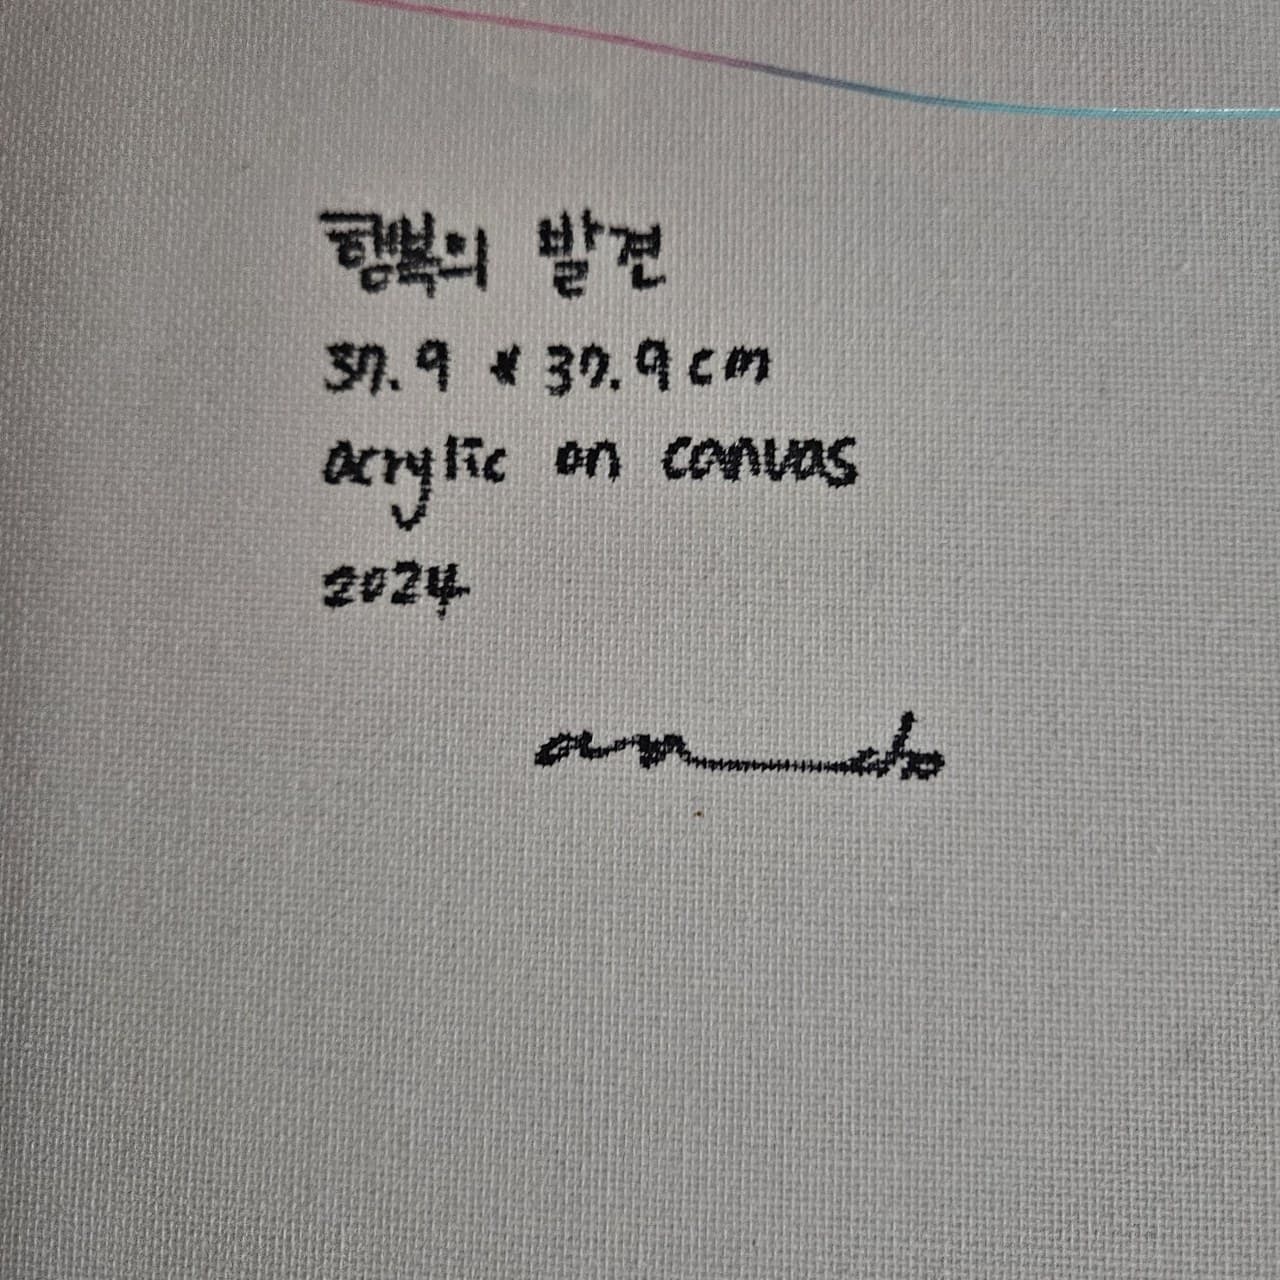 행복의 발견
37.9 * 37.9cm
acrylic on canvas
2024